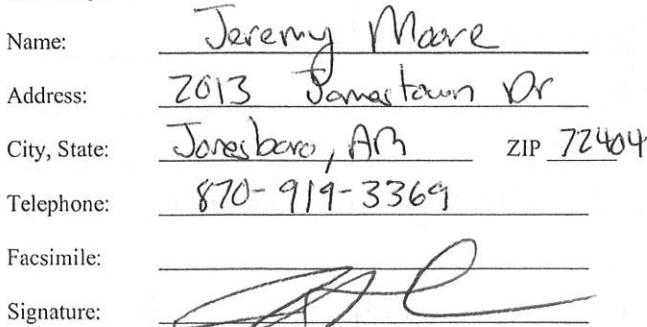 Name: Jeremy Moore
Address: 2013 Jamestown Dr
City, State: Jonesboro, AR ZIP 72404
Telephone: 870-919-3369
Facsimile:
Signature: